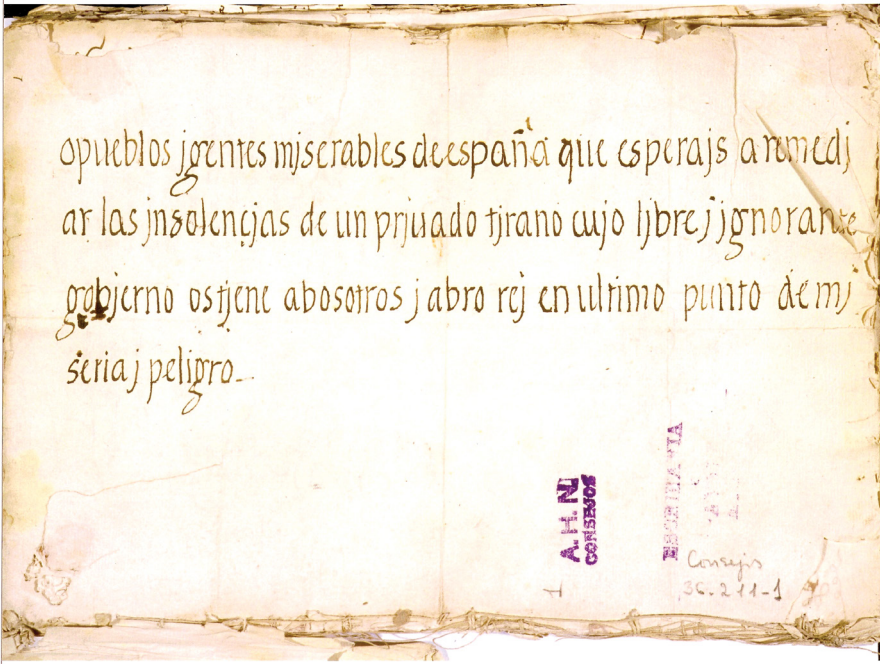 opueblos jgentes mjserables deespaña que esperajs a remedj
ar las jnsolençjas de un prjuado tjrano cujo ljbre j jgnorante
gobjerno ostjene abosotros j abro rej en ultimo punto de mj
seria j peligro
A.H.N.
CONSEJOS
Consejos
36.211-1